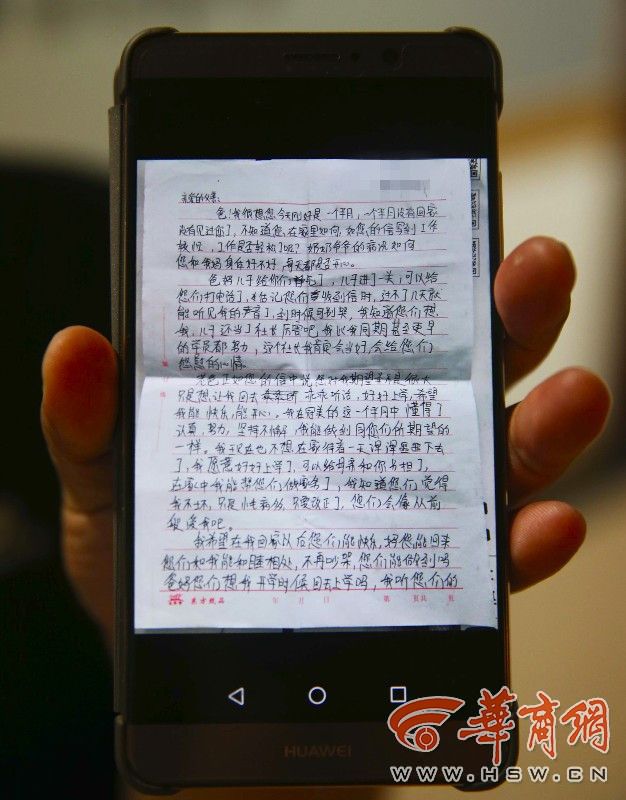 亲爱的父亲:
爸!我很想您,今天刚好是一个月,一个月没有回家
没有见过您了,不知道您在家里如何,如您的信写到工作
工作是否轻松了呢?奶奶爷爷的病况如何
您和我妈身体好不好 每天都是否开心。
爸妈儿子给你们 了,儿子进了一关,可以给
您们打电话了, 您们 收到信时,过不了几天就
能听见我的声音了,到时候可别哭,我知道您们想
我,儿子还当了社长厉害吧,我比我同期甚至更早
的学员都努力,这个社长我肯定会当好,会给您们
您想的心情。
老爸正如您的信中说您对我期望并不是很大
只是想让我回去乖乖听话,好好上学,希望
我能快乐,能开心。我在完美的这一个月中懂得了
认真,努力,坚持不懈,我能做到同您们所期望的
一样。我现在也不想在家待着一天浑浑噩噩下去
了,我愿意好好上学了,可以给母亲和你分担了,
在家中我能帮您们做家务了,我知道您们觉得
我不坏,只是 ,只要改正了,您们会像从前
疼我吧。
我希望在我回家以后您们能快乐,妈您能回来
您们和我能和睦相处,不再吵架,您们能做到吗
爸妈您们想我开学时候回去上学吗,我听您们的
东方纸品 年 月 日 第 页共 页
HUAWEI
華商網
WWW.HSW.CN